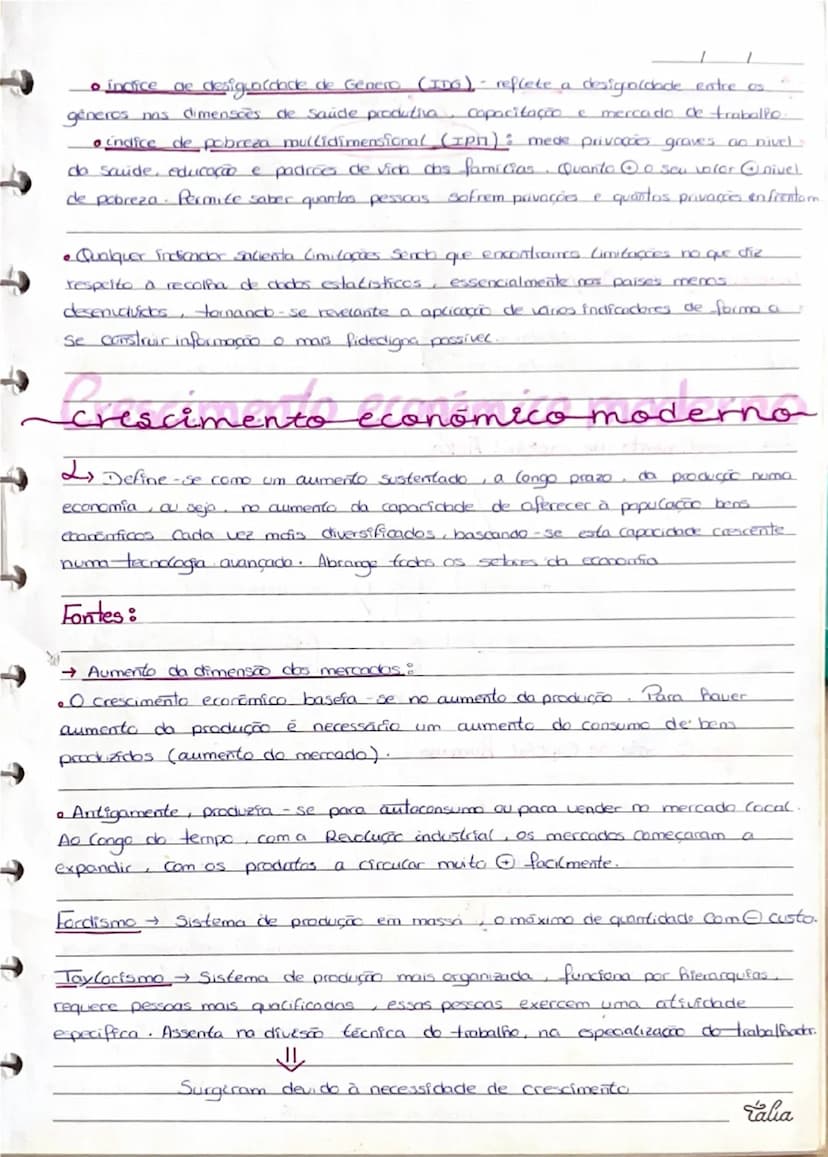 / /
• índice de desigualdade de Género (IDG) - reflete a desigualdade entre os
géneros nas dimensões de saúde produtiva, capacitação e mercado de trabalho.
• índice de pobreza multidimensional (IPM): mede privações graves ao nível
da saúde, educação e padrões de vida das famílias. Quanto ⊕ o seu valor ⊕ nível
de pobreza. Permite saber quantas pessoas sofrem privações e quantas privações enfrentam
• Qualquer indicador salienta limitações sendo que encontramos limitações no que diz
respeito à recolha de dados estatísticos, essencialmente nos países menos
desenvolvidos, tornando-se relevante a aplicação de vários indicadores de forma a
se construir informação o mais fidedigna possível.
Crescimento económico moderno
crescimento económico moderno
↳ Define-se como um aumento sustentado, a longo prazo, da produção numa
economia, ou seja, no aumento da capacidade de oferecer à população bens
económicos cada vez mais diversificados, baseando-se esta capacidade crescente
numa tecnologia avançada. Abrange todos os setores da economia
Fontes:
→ Aumento da dimensão dos mercados:
• O crescimento económico baseia-se no aumento da produção. Para haver
aumento da produção é necessário um aumento do consumo de bens
produzidos (aumento do mercado).
• Antigamente, produzia-se para autoconsumo ou para vender no mercado local.
Ao longo do tempo, com a Revolução industrial, os mercados começaram a
expandir, com os produtos a circular muito ⊕ facilmente.
Fordismo → Sistema de produção em massa, o máximo de quantidade com ⊖ custo.
Taylorismo → Sistema de produção mais organizada, funciona por hierarquias,
requere pessoas mais qualificadas, essas pessoas exercem uma atividade
específica. Assenta na divisão técnica do trabalho, na especialização do trabalhador.
⇓
Surgiram devido à necessidade de crescimento
Tália